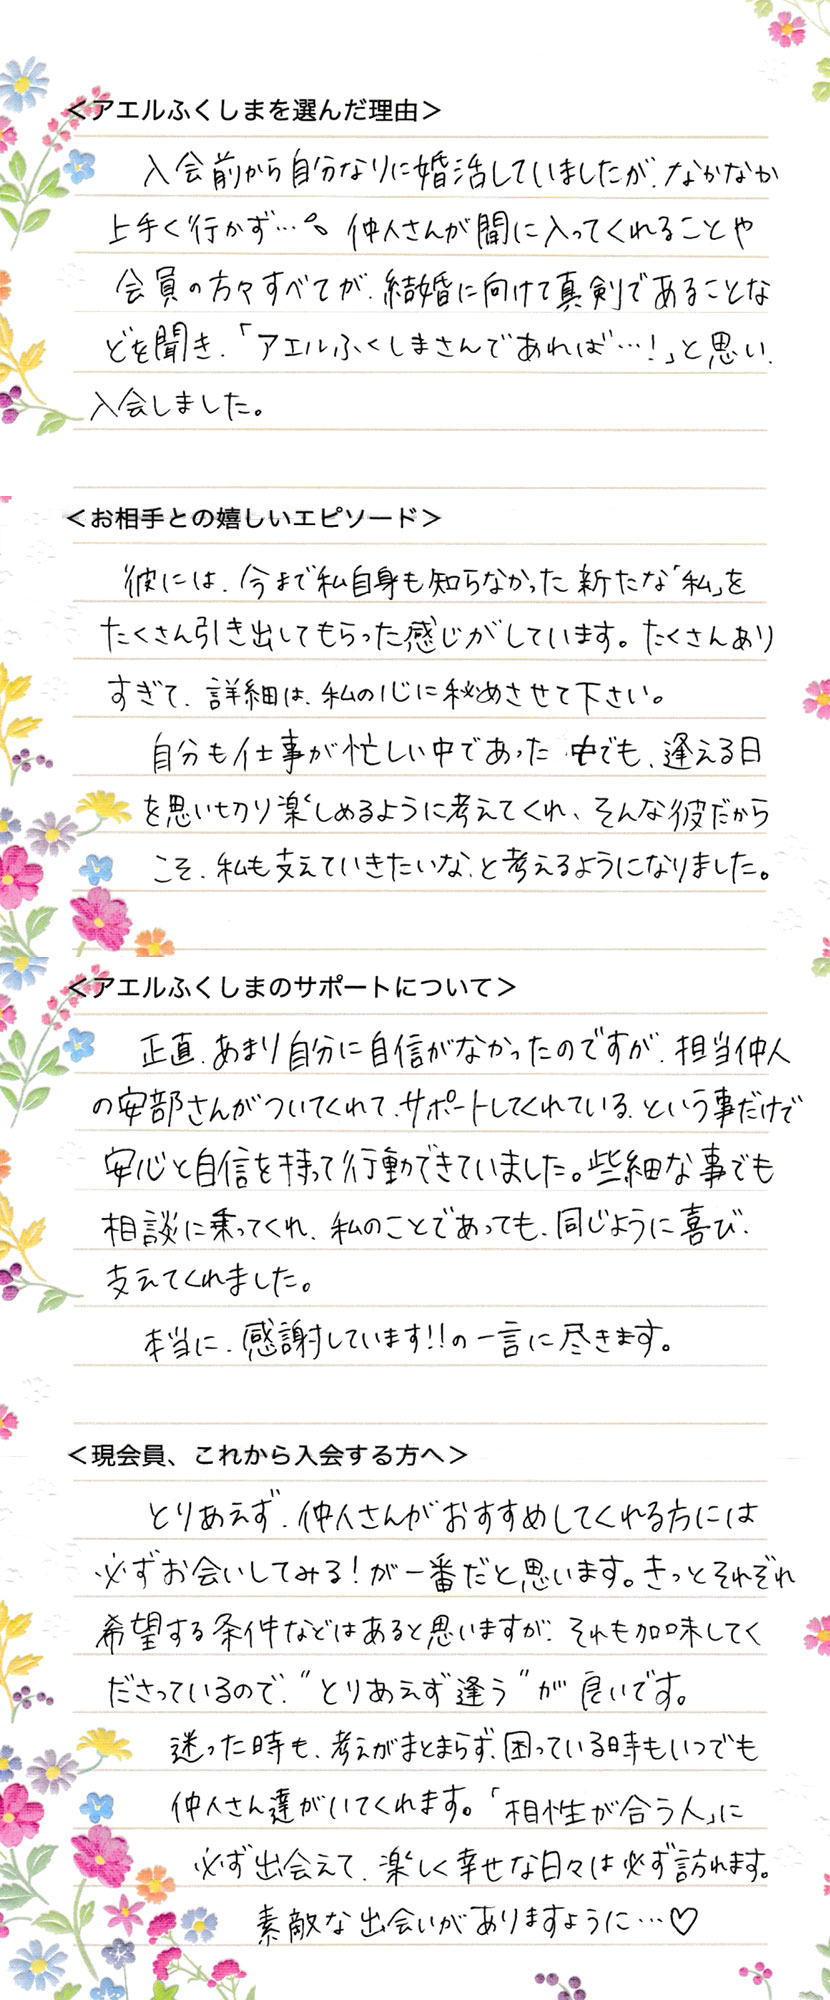 ＜アエルふくしまを選んだ理由＞
入会前から自分なりに婚活していましたが、なかなか
上手く行かず…。仲人さんが間に入ってくれることや
会員の方々すべてが、結婚に向けて真剣であることな
どを聞き、「アエルふくしまさんであれば…！」と思い、
入会しました。
＜お相手との嬉しいエピソード＞
彼には、今まで私自身も知らなかった新たな「私」を
たくさん引き出してもらった感じがしています。たくさんあり
すぎて、詳細は、私の心に秘めさせて下さい。
自分も仕事が忙しい中であった中でも、逢える日
を思い切り楽しめるように考えてくれ、そんな彼だから
こそ、私も支えていきたいな、と考えるようになりました。
＜アエルふくしまのサポートについて＞
正直、あまり自分に自信がなかったのですが、担当仲人
の安部さんがついてくれて、サポートしてくれている、という事だけで
安心と自信を持って行動できていました。些細な事でも
相談に乗ってくれ、私のことであっても、同じように喜び、
支えてくれました。
本当に、感謝しています!!の一言に尽きます。
＜現会員、これから入会する方へ＞
とりあえず、仲人さんがおすすめしてくれる方には
必ずお会いしてみる！が一番だと思います。きっとそれぞれ
希望する条件などはあると思いますが、それも加味してく
ださっているので、"とりあえず逢う"が良いです。
迷った時も、考えがまとまらず、困っている時もいつでも
仲人さん達がいてくれます。「相性が合う人」に
必ず出会えて、楽しく幸せな日々は必ず訪れます。
素敵な出会いがありますように…♡